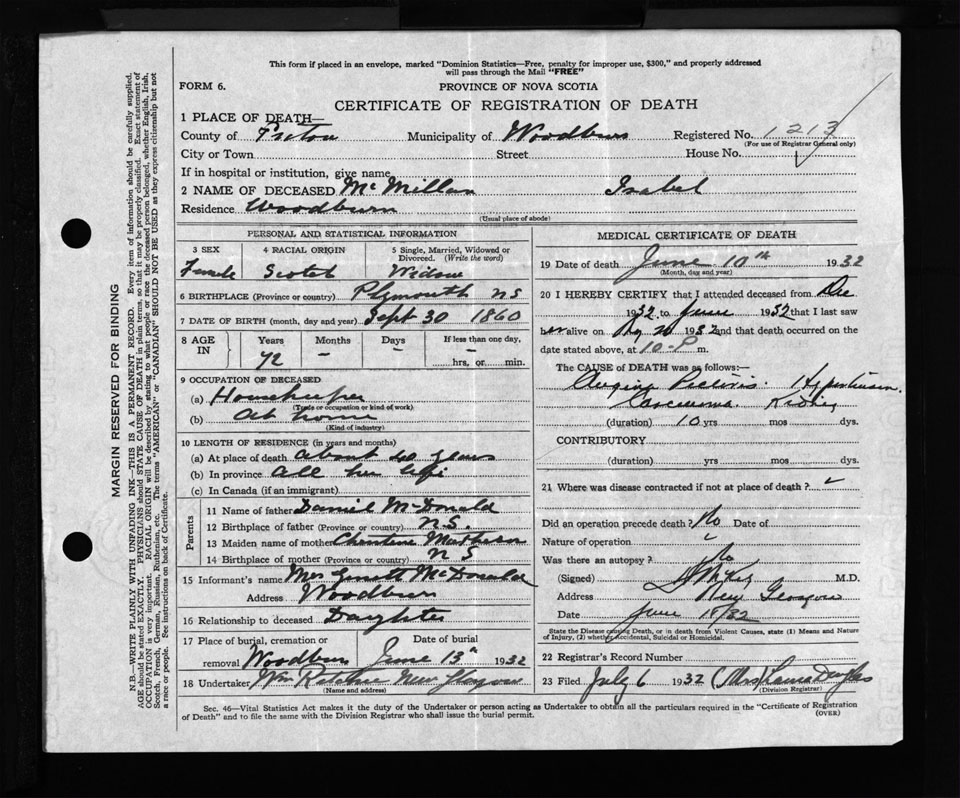 This form if placed in an envelope, marked "Dominion Statistics—Free, penalty for improper use, $300," and properly addressed
will pass through the Mail "FREE"
FORM 6.
PROVINCE OF NOVA SCOTIA
CERTIFICATE OF REGISTRATION OF DEATH
1 PLACE OF DEATH—
County of Pictou Municipality of Woodburn Registered No. 1213
(For use of Registrar General only)
City or Town Street House No.
If in hospital or institution, give name
2 NAME OF DECEASED McMillan Isabel
Residence Woodburn
(Usual place of abode)
PERSONAL AND STATISTICAL INFORMATION
3 SEX 4 RACIAL ORIGIN 5 Single, Married, Widowed or
Divorced. (Write the word)
Female Scotch Widow
6 BIRTHPLACE (Province or country) Plymouth NS
7 DATE OF BIRTH (month, day and year) Sept 30 1860
8 AGE
IN
Years Months Days If less than one day,
72 – – –
hrs, or min.
9 OCCUPATION OF DECEASED
(a) Housekeeper
(Trade or occupation or kind of work)
(b) At home
(Kind of industry)
10 LENGTH OF RESIDENCE (in years and months)
(a) At place of death about 40 years
(b) In province All her life
(c) In Canada (if an immigrant)
Parents
11 Name of father Daniel McDonald
12 Birthplace of father (Province or country) N.S.
13 Maiden name of mother Christene
14 Birthplace of mother (Province or country) N S
15 Informant's name Mrs McDonald
Address Woodburn
16 Relationship to deceased Daughter
17 Place of burial, cremation or Date of burial
removal Woodburn June 13th 1932
18 Undertaker Wm New Glasgow
(Name and address)
MEDICAL CERTIFICATE OF DEATH
19 Date of death June 10th 1932
(Month, day and year)
20 I HEREBY CERTIFY that I attended deceased from Dec
1932 to June 1932 that I last saw
her alive on 1932 and that death occurred on
date stated above, at 10-P m.
The CAUSE of DEATH was as follows:—
Angina Pectoris. Hypertension
Carcinoma
(duration) 10 yrs mos dys.
CONTRIBUTORY
(duration) yrs mos dys.
21 Where was disease contracted if not at place of death?
Did an operation precede death? No Date of
Nature of operation
Was there an autopsy? No
(Signed) M.D.
Address New Glasgow
Date June 18/32
State the Disease causing Death, or in death from Violent Causes, state (1) Means and Nature
of Injury, (2) whether Accidental, Suicidal or Homicidal.
22 Registrar's Record Number
23 Filed July 6 1932 (Mrs) Laura Douglas
(Division Registrar)
Sec. 46—Vital Statistics Act makes it the duty of the Undertaker or person acting as Undertaker to obtain all the particulars required in the "Certificate of Registration
of Death" and to file the same with the Division Registrar who shall issue the burial permit.
(OVER)
MARGIN RESERVED FOR BINDING
N.B.—WRITE PLAINLY WITH UNFADING INK—THIS IS A PERMANENT RECORD. Every item of information should be carefully supplied.
AGE should be stated EXACTLY. PHYSICIANS should STATE CAUSE OF DEATH in plain terms, so that it may be properly classified. Exact statement of
OCCUPATION is very important. RACIAL ORIGIN will be described by stating to what people or race the deceased person belonged, whether English, Irish,
Scotch, French, German, Russian, Ruthenian, etc. The terms "AMERICAN" or "CANADIAN" SHOULD NOT BE USED as they express citizenship but not
a race or people. See instructions on back of Certificate.